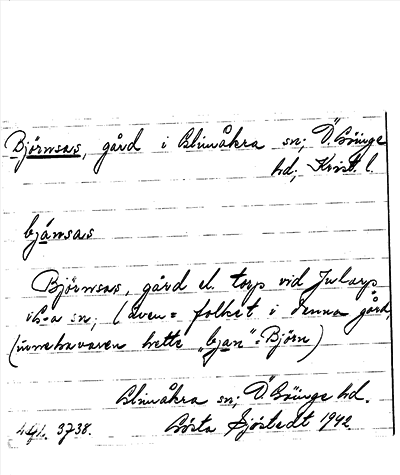 Björnsas, gård i Glimåkra sn; Ö. Göinge
hd; Krist. l.
bjánsas
Björnsas, gård el. torp vid Jularp
i G-a sn; (även = folket i denna gård,
(innehavaren hette "bjan": Björn)
Glimåkra sn; Ö. Göinge hd.
Gösta Sjöstedt 1942.
3738.